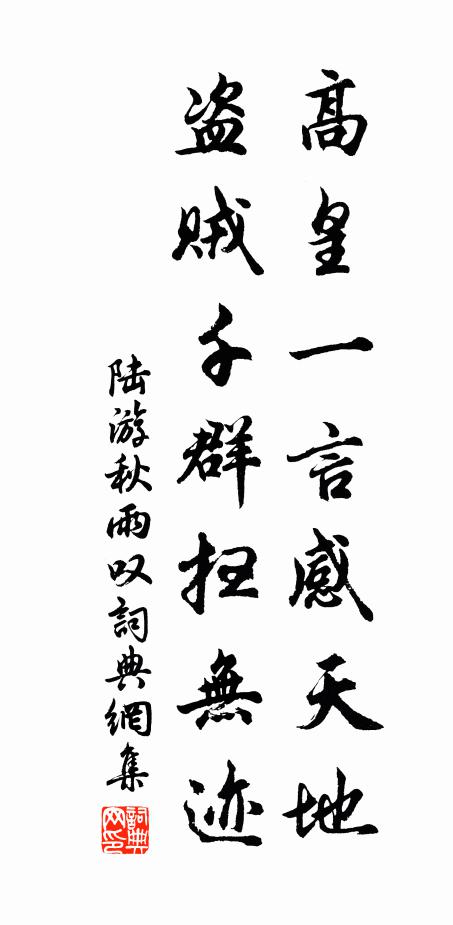 高皇一言感天地
盗贼千群扫無迹
陆游秋雨叹詞典網集
詞典
网印